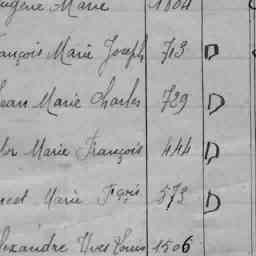 ugène Marie 1804
ançois Marie Joseph 713 D
ean Marie Charles 729 D
tor Marie François 444 D
cel Marie Frçois 573 D
lexandre Yves Louis 1506